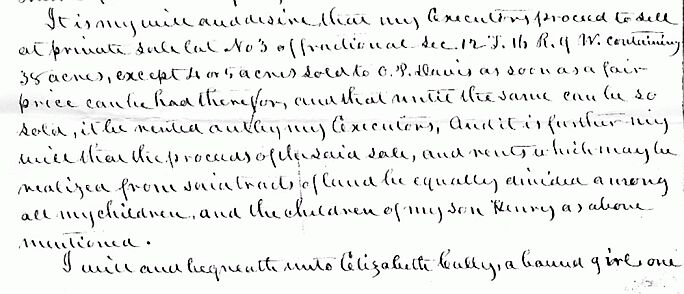 It is my will and desire, that my Executors proceed to sell
at private sale Lot No 3 of fractional Sec. 12 T. 16 R. 9 W. containing
38 acres, except 4 or 5 acres sold to O. P. Davis as soon as a fair
price can be had therefor, and that until the same can be so
sold, it be rented out by my Executors, And it is further my
will that the proceeds of the said sale, and rents which may be
realized from said tracts of land be equally divided among
all my children, and the children of my son Henry as above
mentioned.
I will and bequeath unto Elizabeth Cully, a bound girl one